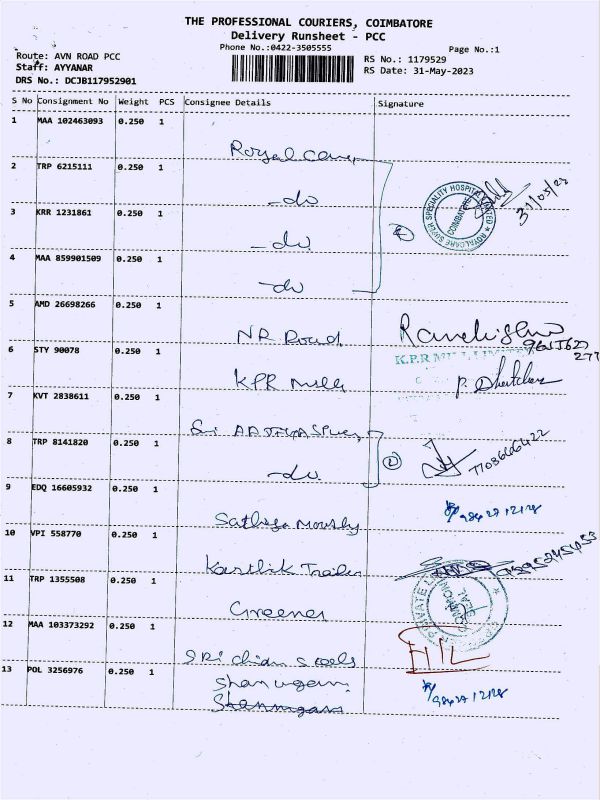 THE PROFESSIONAL COURIERS, COIMBATORE
Delivery Runsheet - PCC
Phone No.:0422-3505555
Page No.:1
Route: AVN ROAD PCC
Staff: AYYANAR
DRS No.: DCJB117952901
RS No.: 1179529
RS Date: 31-May-2023
S No Consignment No Weight PCS Consignee Details Signature
1 MAA 102463093 0.250 1
Royal care
2 TRP 6215111 0.250 1
-do
3 KRR 1231861 0.250 1
-do
4 MAA 859901509 0.250 1
-do
ROYALCARE SUPER SPECIALITY HOSPITAL LIMITED
COIMBATORE
31/05/23
5 AMD 26698266 0.250 1
6 STY 90078 0.250 1
KPR Mills
K.P.R MILL LIMITED
7 KVT 2838611 0.250 1
8 TRP 8141820 0.250 1
-do
2
9 EDQ 16605932 0.250 1
98427 12128
10 VPI 558770 0.250 1
Karthik
11 TRP 1355508 0.250 1
PRIVATE
12 MAA 103373292 0.250 1
Sri
13 POL 3256976 0.250 1
Shanugam
98427 12128